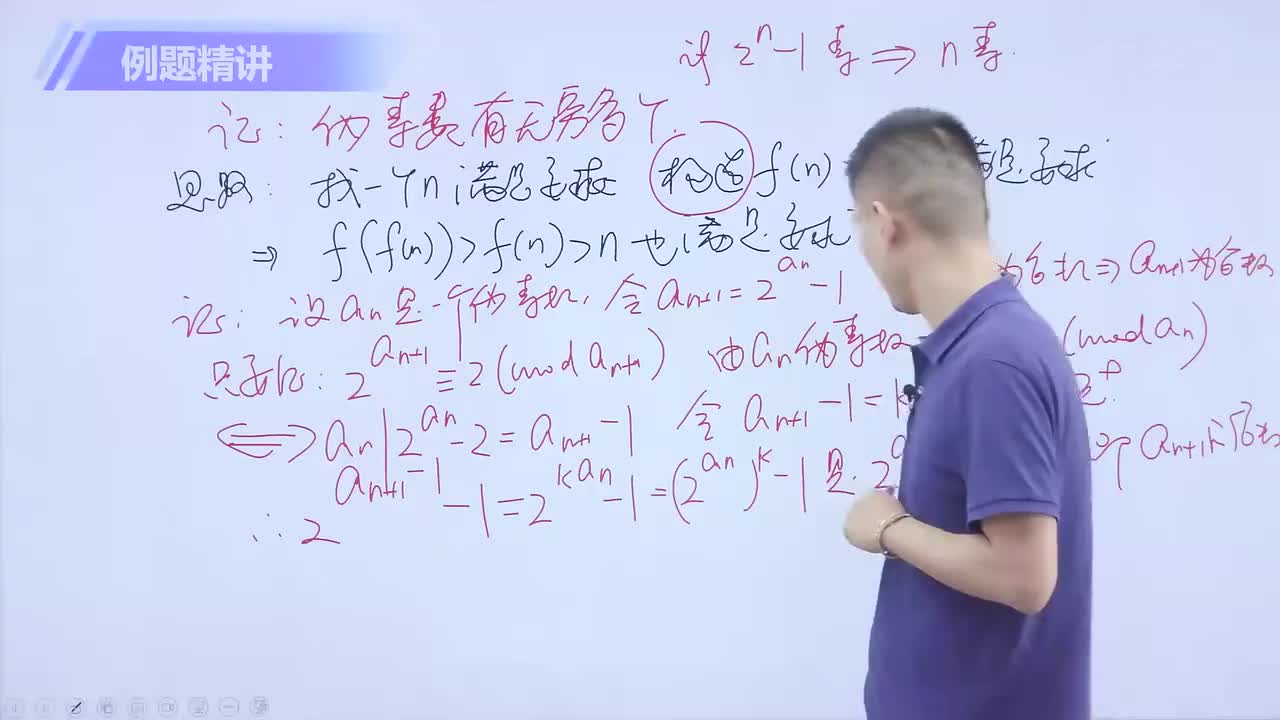 例题精讲
2ⁿ-1 素 ⇒ n 素.
证: 伪素数有无穷多个.
思路: 找一个n满足要求 构造 f(n) 满足要求
⇒ f(f(n))>f(n)>n 也满足要求
证: 设 aₙ 是一个伪素数, 令 aₙ₊₁ = 2^{aₙ} - 1 为合数 ⇒ aₙ₊₁为合数
只要证: 2^{aₙ₊₁} ≡ 2 (mod aₙ₊₁) 由 aₙ 伪素数 (mod aₙ)
⟺ aₙ | 2^{aₙ} - 2 = aₙ₊₁ - 1 令 aₙ₊₁ - 1 = k
∴ 2^{aₙ₊₁-1} - 1 = 2^{kaₙ} - 1 = (2^{aₙ})^k - 1 是 2 即 aₙ₊₁